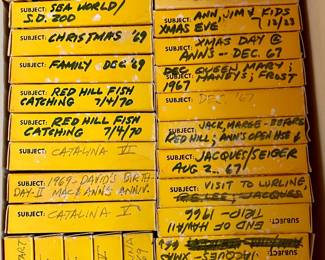 SUBJECT: SEA WORLD/
S.D. ZOO
SUBJECT: CHRISTMAS '69
SUBJECT: FAMILY - DEC '69
SUBJECT: RED HILL FISH
CATCHING 7/4/70
SUBJECT: RED HILL FISH
CATCHING 7/4/70
SUBJECT: CATALINA VI
SUBJECT: 1969 - DAVID'S BIRTH-
DAY-II MAC & ANN'S ANNIV.
SUBJECT: CATALINA V
SUBJECT: ANN, JIM & KIDS
XMAS EVE 12/23
SUBJECT: XMAS DAY @
ANN'S - DEC. 67
SUBJECT: QUEEN MARY;
DEC 1967 HANEYS; FROST
SUBJECT: DEC '67
SUBJECT: JACK, MARGE - BEFORE
RED HILL; ANN'S OPEN HSE
SUBJECT: JACQUES/SEIGER
AUG 2.. 67
SUBJECT: VISIT TO LURLINE,
JACQUES
SUBJECT: END OF HAWAII
TRIP - 1966
SUBJECT:
JACQUES - XMAS
SUBJECT: